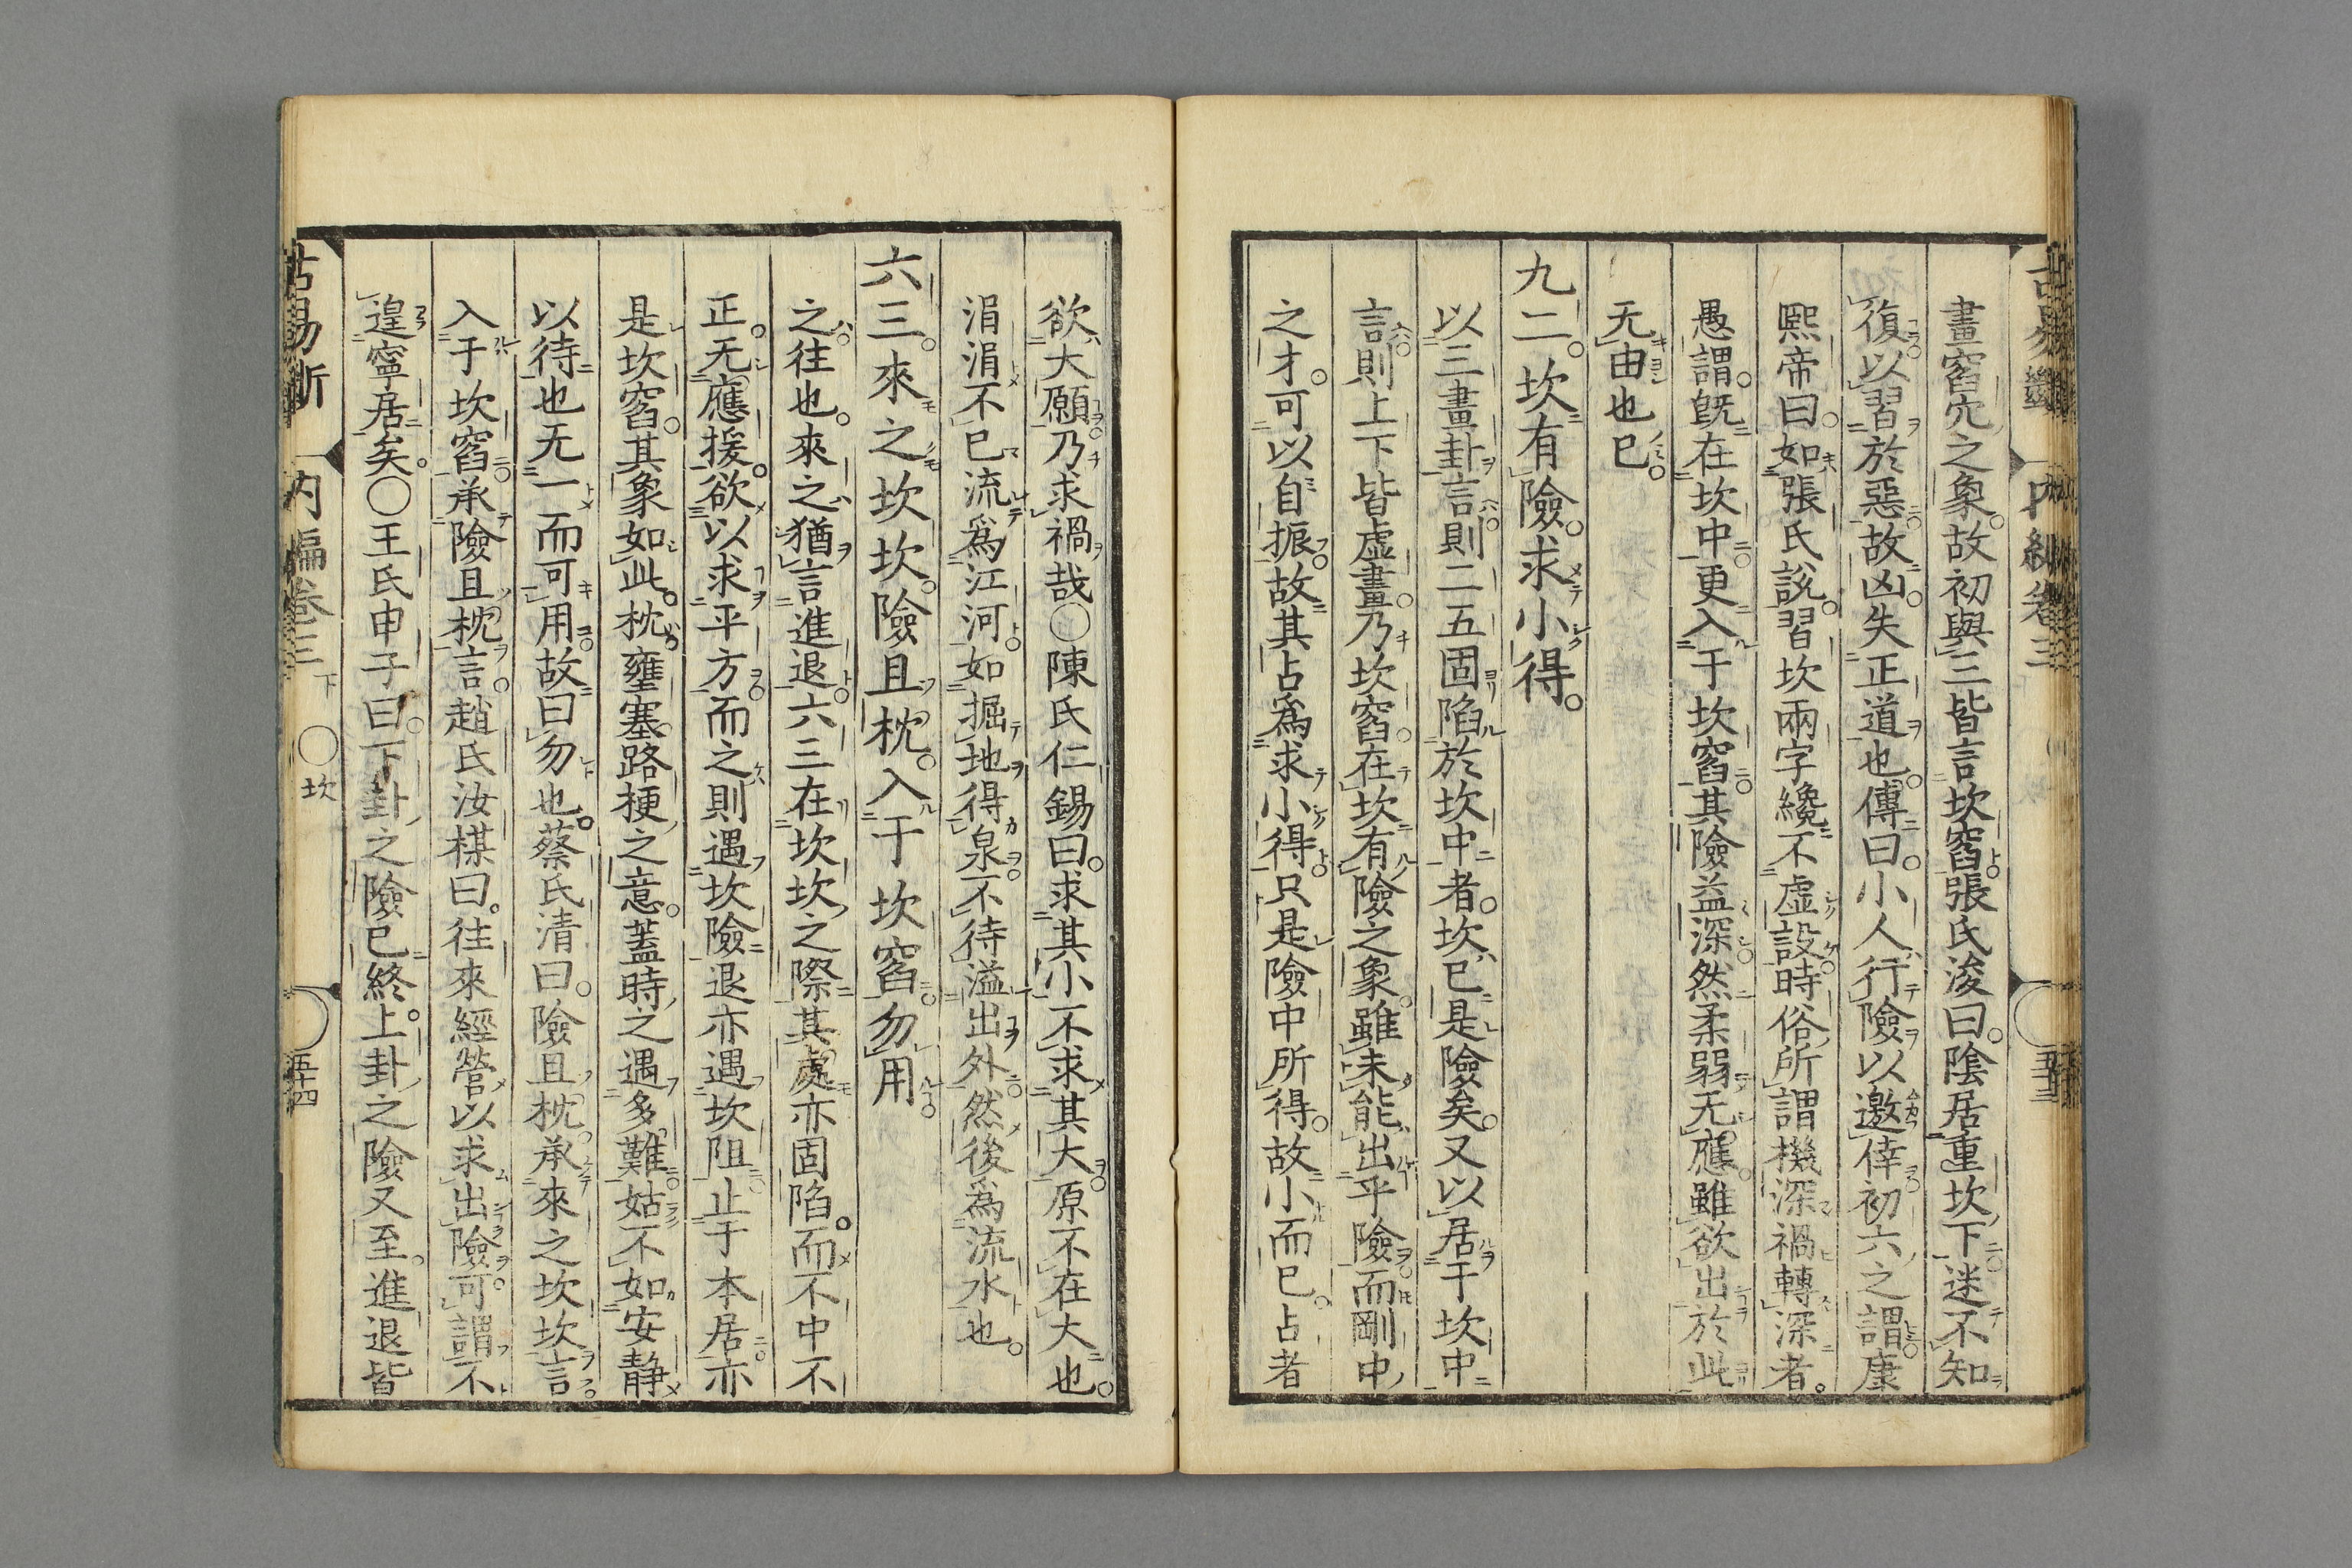 畫窞穴之象故初與三皆言坎窞張氏浚曰陰居重坎下迷不知
復以習於惡故凶失正道也傳曰小人行險以邀倖初六之謂康
熙帝曰如張氏說習坎兩字纔不虛設時俗所謂機深禍轉深者
愚謂旣在坎中更入于坎窞其險益深然柔弱无應雖欲出於此
无由也已
九二坎有險求小得
以三畫卦言則二五固陷於坎中者坎已是險矣又以居于坎中
言則上下皆虛畫乃坎窞在坎有險之象雖未能出乎險而剛中
之才可以自振故其占爲求小得只是險中所得故小而已占者
欲大願乃求禍哉〇陳氏仁錫曰求其小不求其大原不在大也
涓涓不已流爲江河如掘地得泉不待溢出外然後爲流水也
六三來之坎坎險且枕入于坎窞勿用
之往也來之猶言進退六三在坎坎之際其處亦固陷而不中不
正无應援欲以求平方而之則遇坎險退亦遇坎阻止于本居亦
是坎窞其象如此枕壅塞路梗之意蓋時之遇多難姑不如安靜
以待也无一而可用故曰勿也蔡氏清曰險且枕承來之坎坎言
入于坎窞承險且枕言趙氏汝楳曰往來經營以求出險可謂不
遑寧居矣〇王氏申子曰下卦之險已終上卦之險又至進退皆
古易斷 內編卷三 下 〇坎 五十四